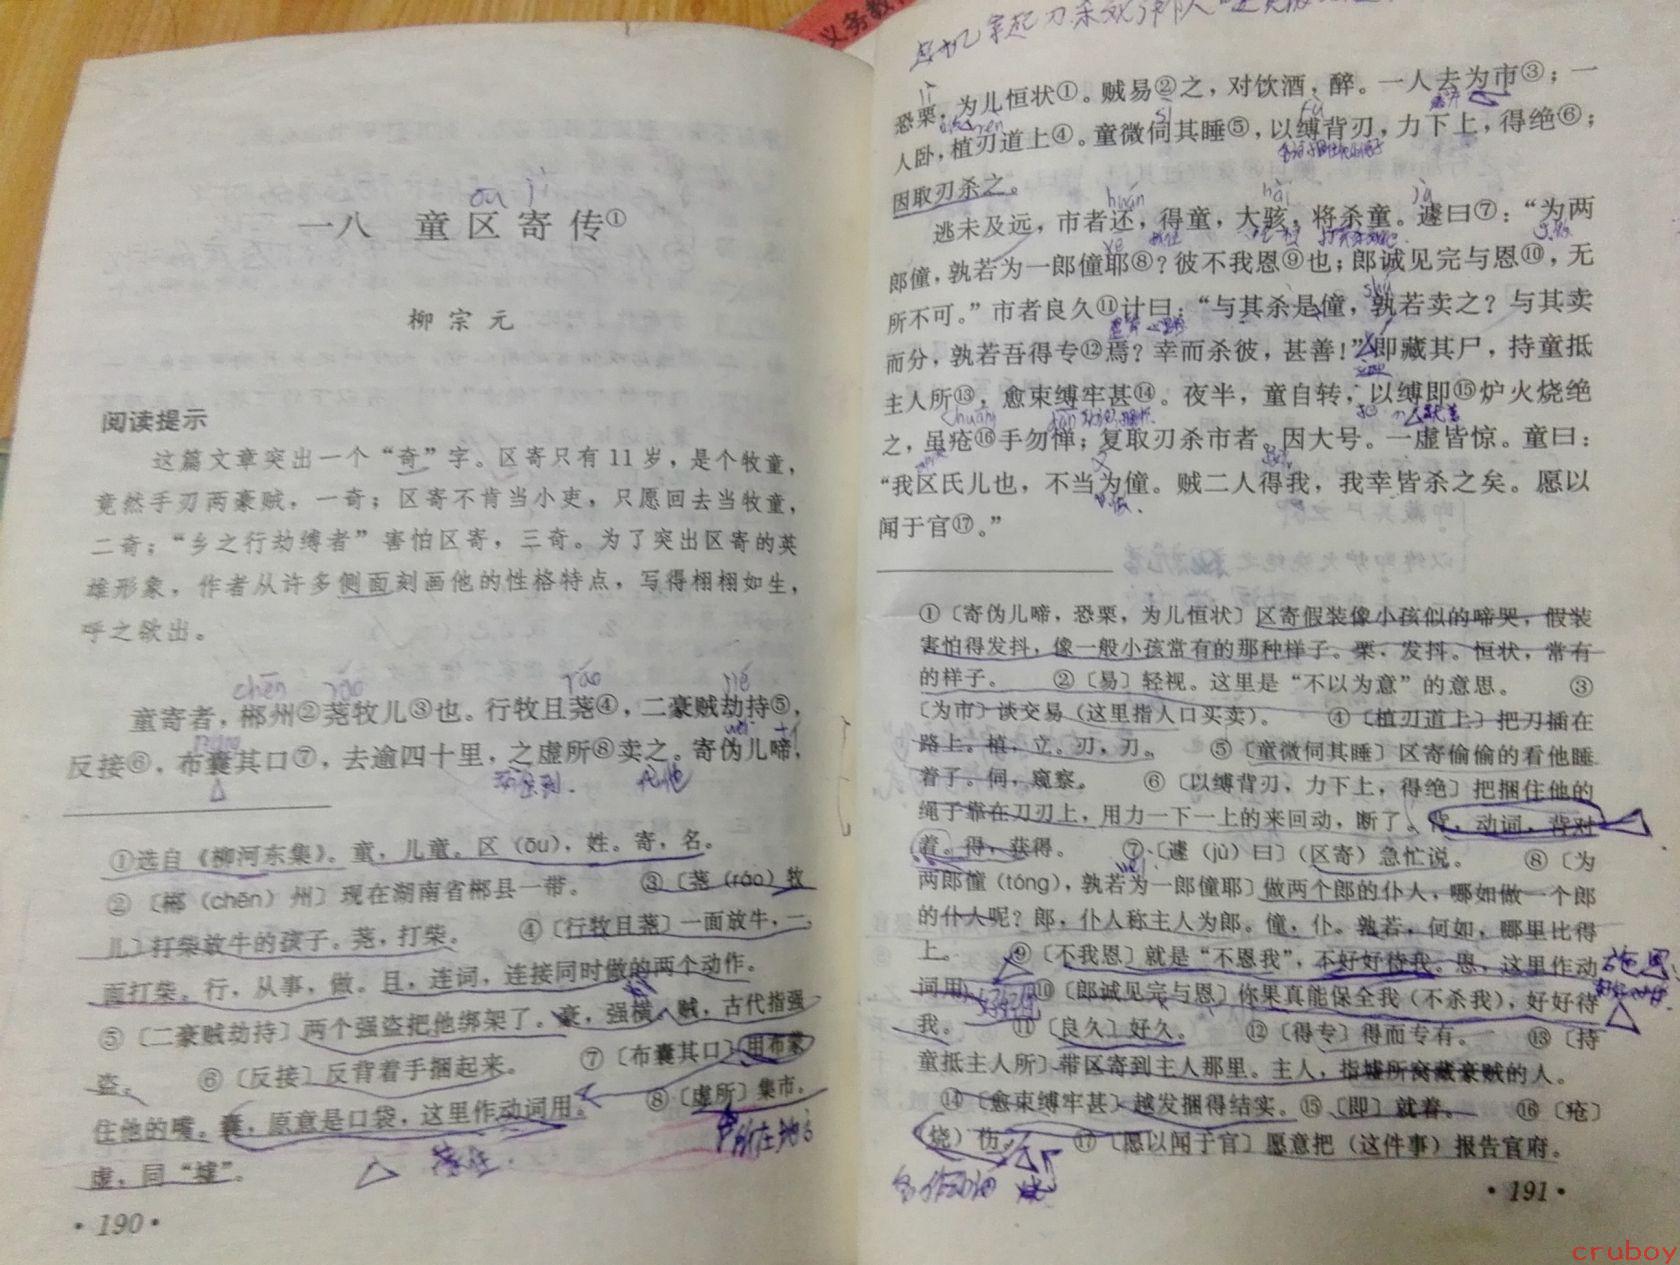 义务教
一八 童区寄传①
柳宗元
阅读提示
这篇文章突出一个“奇”字。区寄只有11岁，是个牧童，
竟然手刃两豪贼，一奇；区寄不肯当小吏，只愿回去当牧童，
二奇；“乡之行劫缚者”害怕区寄，三奇。为了突出区寄的英
雄形象，作者从许多侧面刻画他的性格特点，写得栩栩如生，
呼之欲出。
童寄者，郴州②荛牧儿③也。行牧且荛④，二豪贼劫持⑤，
反接⑥，布囊其口⑦，去逾四十里，之虚所⑧卖之。寄伪儿啼，
①选自《柳河东集》。童，儿童。区（ōu），姓。寄，名。
②〔郴（chēn）州〕现在湖南省郴县一带。 ③〔荛（ráo）牧
儿〕打柴放牛的孩子。荛，打柴。 ④〔行牧且荛〕一面放牛，一
面打柴。行，从事，做。且，连词，连接同时做的两个动作。
⑤〔二豪贼劫持〕两个强盗把他绑架了。豪，强横。贼，古代指强
盗。 ⑥〔反接〕反背着手捆起来。 ⑦〔布囊其口〕用布蒙
住他的嘴。囊，原意是口袋，这里作动词用。 ⑧〔虚所〕集市。
虚，同“墟”。
·190·
恐栗，为儿恒状①。贼易②之，对饮酒，醉。一人去为市③；一
人卧，植刃道上④。童微伺其睡⑤，以缚背刃，力下上，得绝⑥；
因取刃杀之。
逃未及远，市者还，得童，大骇，将杀童。遽曰⑦：“为两
郎僮，孰若为一郎僮耶⑧？彼不我恩⑨也；郎诚见完与恩⑩，无
所不可。”市者良久⑪计曰：“与其杀是僮，孰若卖之？与其卖
而分，孰若吾得专⑫焉？幸而杀彼，甚善！”即藏其尸，持童抵
主人所⑬，愈束缚牢甚⑭。夜半，童自转，以缚即⑮炉火烧绝
之，虽疮⑯手勿惮；复取刃杀市者。因大号。一虚皆惊。童曰：
“我区氏儿也，不当为僮。贼二人得我，我幸皆杀之矣。愿以
闻于官⑰。”
①〔寄伪儿啼，恐栗，为儿恒状〕区寄假装像小孩似的啼哭，假装
害怕得发抖，像一般小孩常有的那种样子。栗，发抖。恒状，常有
的样子。 ②〔易〕轻视。这里是“不以为意”的意思。 ③
〔为市〕谈交易（这里指人口买卖）。 ④〔植刃道上〕把刀插在
路上。植，立。刃，刀。 ⑤〔童微伺其睡〕区寄偷偷的看他睡
着了。伺，窥察。 ⑥〔以缚背刃，力下上，得绝〕把捆住他的
绳子靠在刀刃上，用力一下一上的来回动，断了。背，动词，背对
着。得，获得。 ⑦〔遽（jù）曰〕（区寄）急忙说。 ⑧〔为
两郎僮（tóng），孰若为一郎僮耶〕做两个郎的仆人，哪如做一个郎
的仆人呢？郎，仆人称主人为郎。僮，仆。孰若，何如，哪里比得
上。 ⑨〔不我恩〕就是“不恩我”，不好好待我。恩，这里作动
词用。 ⑩〔郎诚见完与恩〕你果真能保全我（不杀我），好好待
我。 ⑪〔良久〕好久。 ⑫〔得专〕得而专有。 ⑬〔持
童抵主人所〕带区寄到主人那里。主人，指墟所窝藏豪贼的人。
⑭〔愈束缚牢甚〕越发捆得结实。⑮〔即〕就着。 ⑯〔疮〕
烧）伤。 ⑰〔愿以闻于官〕愿意把（这件事）报告官府。
·191·
cruboy